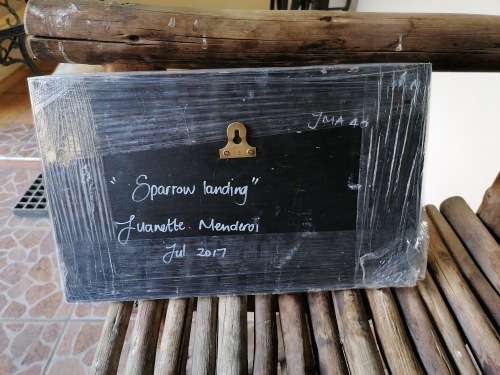 JMA 40
"Sparrow landing"
Juanette Menderoi
Jul 2017